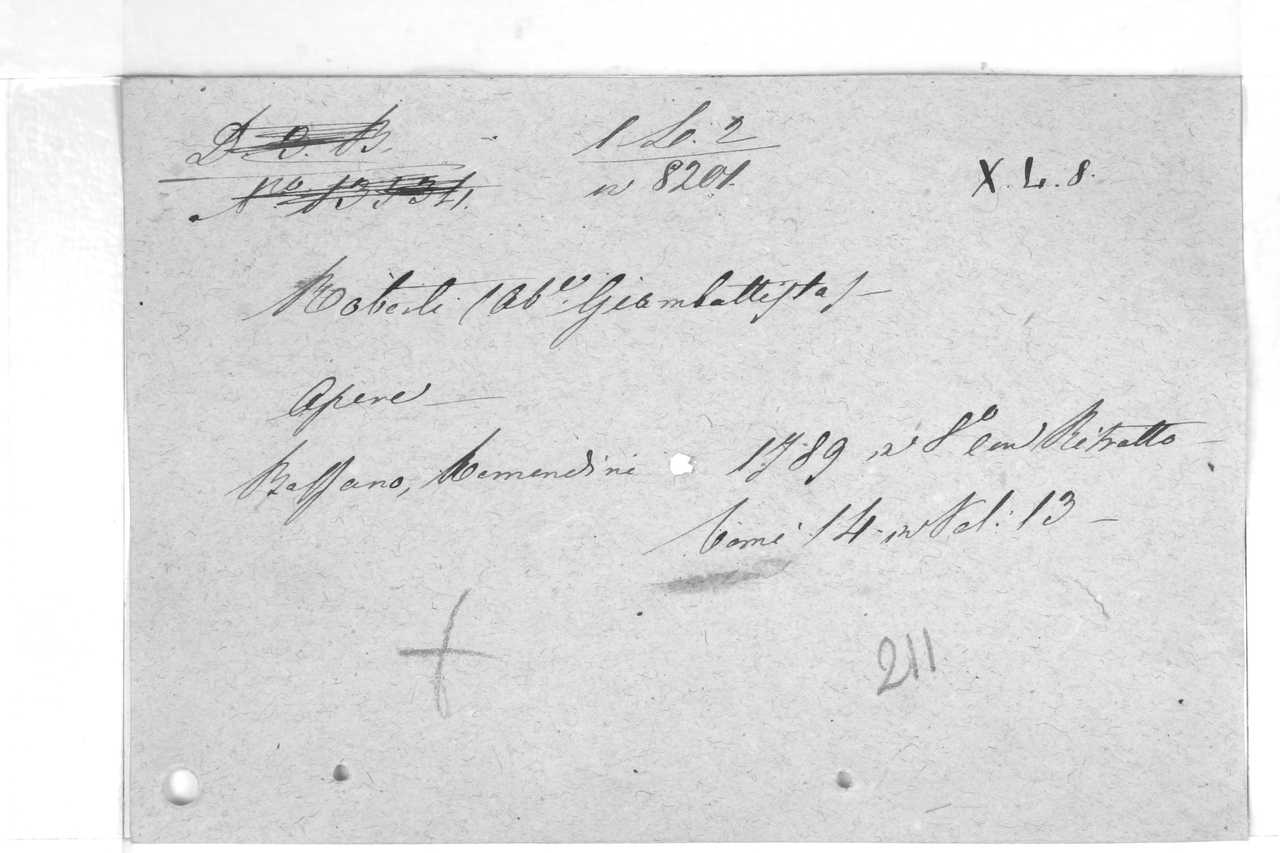 D. O. B.
N.º 13534.
1 L. 2
n 8201.
X. L. 8.
Roberti (Ab.e Giambattista) —
Opere —
Bassano, Remondini 1789 in 8º con Ritratto —
Tomi 14 in Vol: 13 —
211